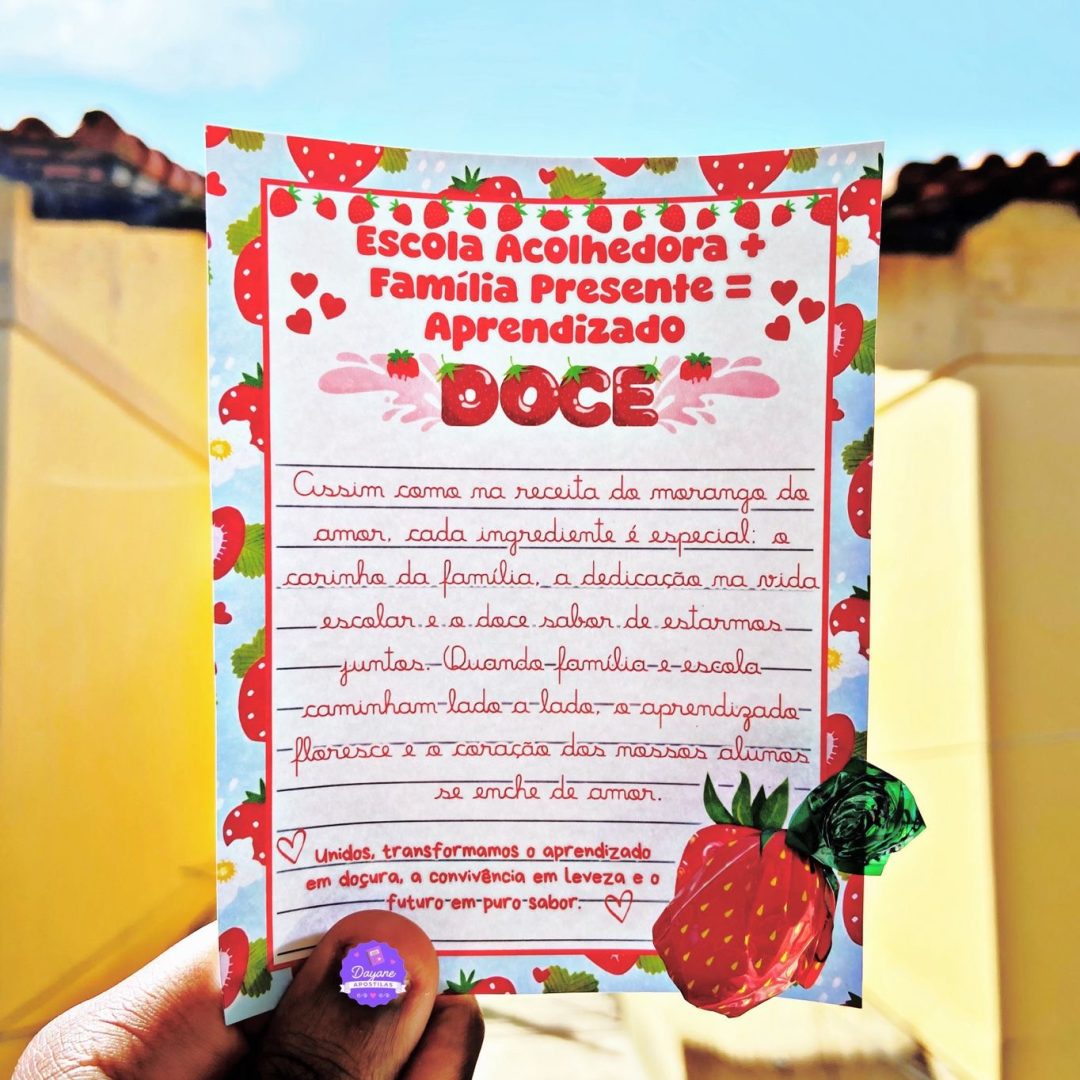 Escola Acolhedora +
Família Presente =
Aprendizado
DOCE
Assim como na receita do morango do
amor, cada ingrediente é especial: o
carinho da família, a dedicação na vida
escolar e o doce sabor de estarmos
juntos. Quando família e escola
caminham lado a lado, o aprendizado
floresce e o coração dos nossos alunos
se enche de amor.
Unidos, transformamos o aprendizado
em doçura, a convivência em leveza e o
futuro em puro sabor.
Dayane
APOSTILAS